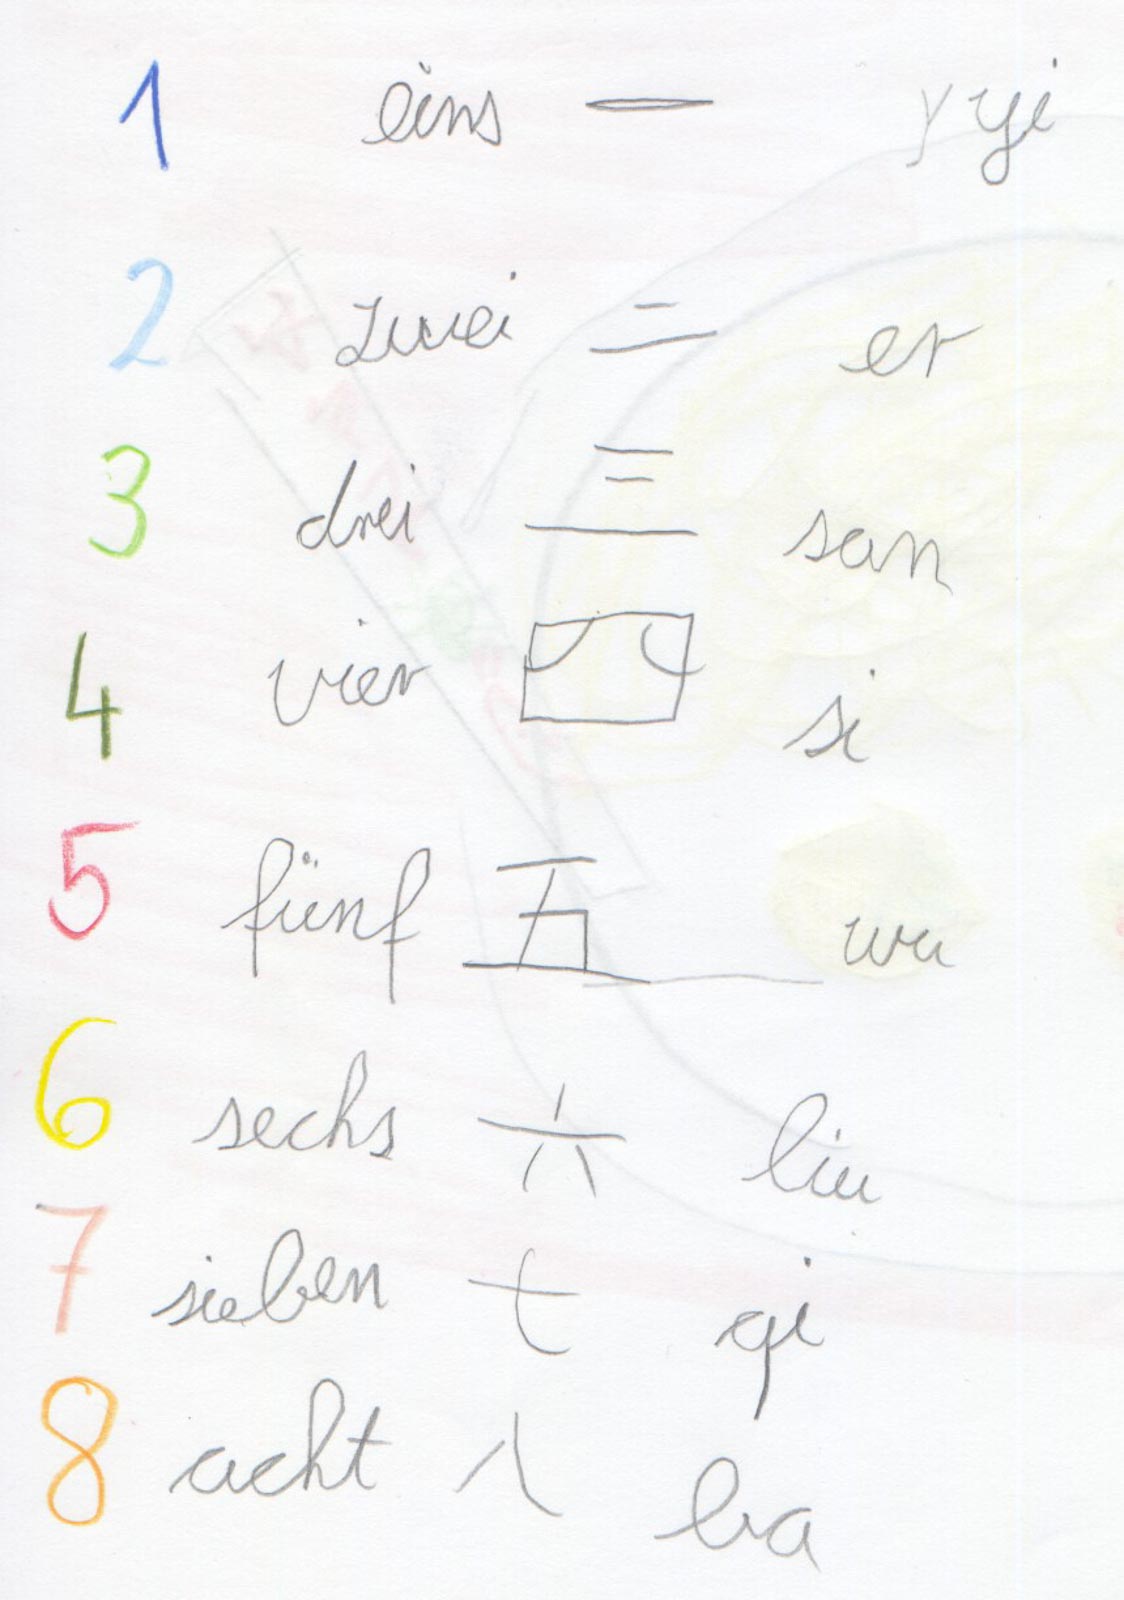 1 eins 一 y yi
2 zwei 二 er
3 drei 三 san
4 vier 四 si
5 fünf 五 wu
6 sechs 六 liu
7 sieben 七 qi
8 acht 八 ba